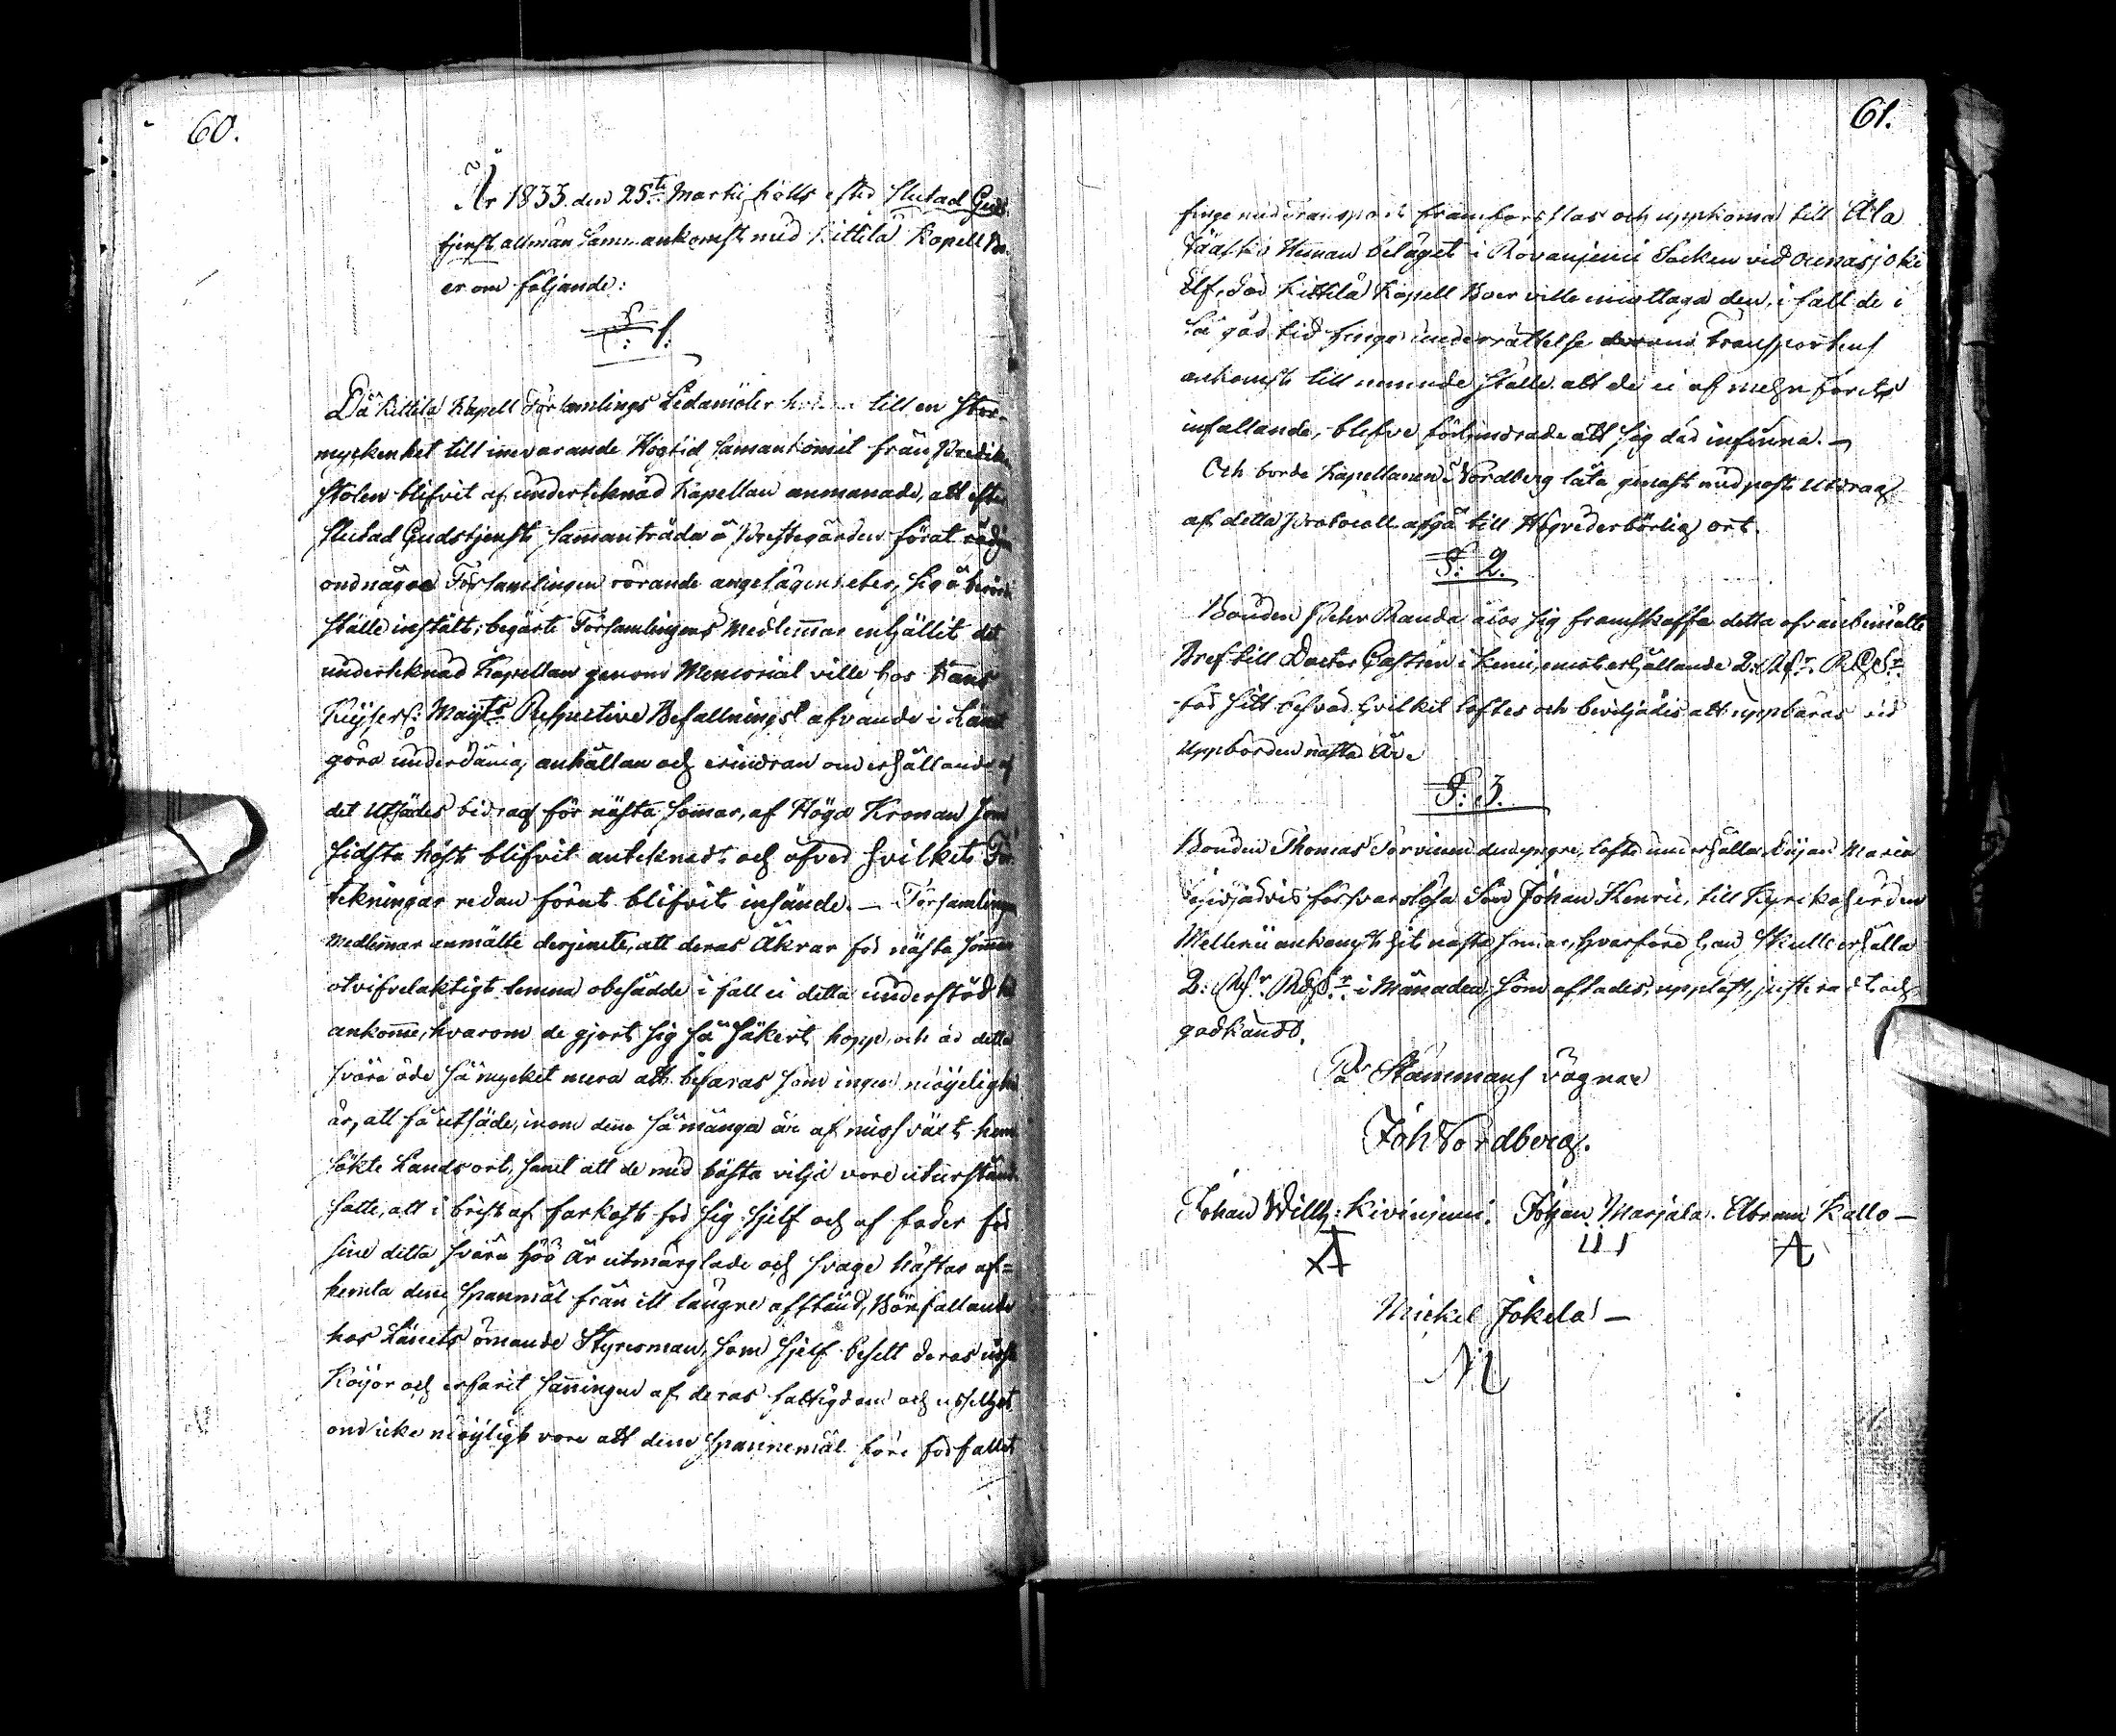 60.
År 1833. den 25te Martii hölls efter slutad Guds-
tjenst allmän Sammankomst med Kittilä Kapell Bo-
er om följande:
§: 1.
Då Kittilä Kapell Församlings Ledamöter till en stor
myckenhet till innevarande Högtid Sammankommit från Predik-
stolen blifvit af underteknad Kapellan anmanade, att efter
slutad Gudstjenst, samanträda å Prestgården förat rådgöra
om några Församlingen rörande angelägenheter, sig å berörde
ställe instält; begärte Församlingens Medlemmar enhällit det
undertecknad Kapellan genom Memorial ville hos Hans
Kejserl: Majts Respective Befallningshafvande i Länet
göra underdånig anhållan och erindran om erhållande af
det Utsädes bidrag för nästa Sommar, af Höga Kronan som
sidsta höst blifvit anteknadt och öfver hvilket För-
tekningar redan förut blifvit insände. — Församlingens
Medlemmar anmälte derjemte, att deras Åkrar för nästa sommar
otvifvelaktigt lemna obesådde i fall ei detta understöd
ankomme, hvarom de gjort sig så säkert hopp, och är detta
svåra öde så mycket mera att befaras som ingen möjelighet
är, att få utsäde, inom denna så många år af missväxt hem-
sökte Landsort, samt att de med bästa vilja vore utur stånd
satte, att i brist af farkost för sig sjelf och af foder för
sine detta svåra höö År utmärglade och svage hästar af-
hemta denne Spanmål från ett längre afstånd, Bönfallande
hos Länets ömande Styresman, som sjelf besett deras usla
Kojor och erfarit sanningen af deras fattigdom och uselhet
om icke möjligt vore att denne Spannemål före förfallet
61.
finge med transport framforslas och uppkomma till Ala
Jääskö Hemman beläget i Rovaniemi Socken vid Ounasjoki
Elf, der Kittilä Kapell Boer ville emottaga den, i fall de i
så god tid finge underrättelse derom Transportens
ankomst till nämnde ställe att de ei af mehnförets
infallande, blefve förhindrade att sig der infinna. —
Och borde Kapellanen Nordberg låta genast med post Utdrag
af detta Protocoll afgå till Högvederbörlig ort.
§: 2.
Bonden Peter Randa åtog sig framskaffa detta ofvanbemälte
Bref till Doctor Castrén i Kemi, emot erhållande 2: Rsr. RGSr.
för sitt besvär hvilket loftes och beviljades att uppbäras vid
Uppbörden nästa År.
§: 3.
Bonden Thomas Torvinen den yngre, lofte underhålla Pigan Maria
försvarslösa Son Johan Henric, till Kyrkoherden
Mellenii ankomst hit nästa sommar, hvarföre han skulle erhålla
2: Rsr. RGSr. i Månaden, som aftalades, uppläst, justeradt och
godkändt.
På Stämmans vägnar
Joh Nordberg.
Johan Willh: Kiviniemi. Johan Marjala. Abram Kallo —
Mickel Jokela —